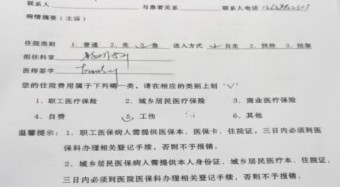 联系人 与患者关系 联系人电话
病情摘要（主诉）
住院类别 1、普通 2、急 3、危 进入方式 1、自主 2、扶持 3、担架
拟住科室
医师签字
您的住院费用属于下列哪一类，请在相应的类别上划“√”
1、职工医疗保险 2、城乡居民医疗保险 3、商业医疗保险
4、自费 5、工伤 6、其他
温馨提示：1、职工医保病人需提供医保本、医保卡、住院证，三日内必须到医
保科办理相关登记手续，否则不予报销。
2、城乡居民医保病人需提供本人身份证、城乡居民医疗本、住院证，
三日内必须到医院医保科办理相关登记手续，否则不予报销。